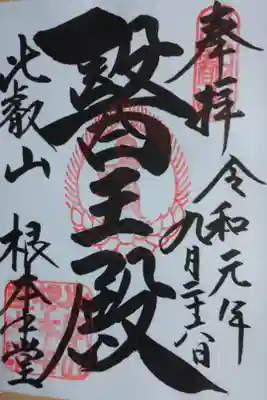 奉拝
令和元年九月二十八日
醫王殿
比叡山
根本中堂